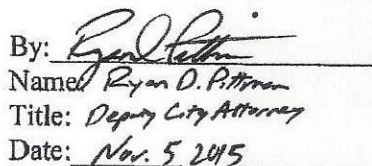 By:
Name: Ryan D. Pittman
Title: Deputy City Attorney
Date: Nov. 5, 2015